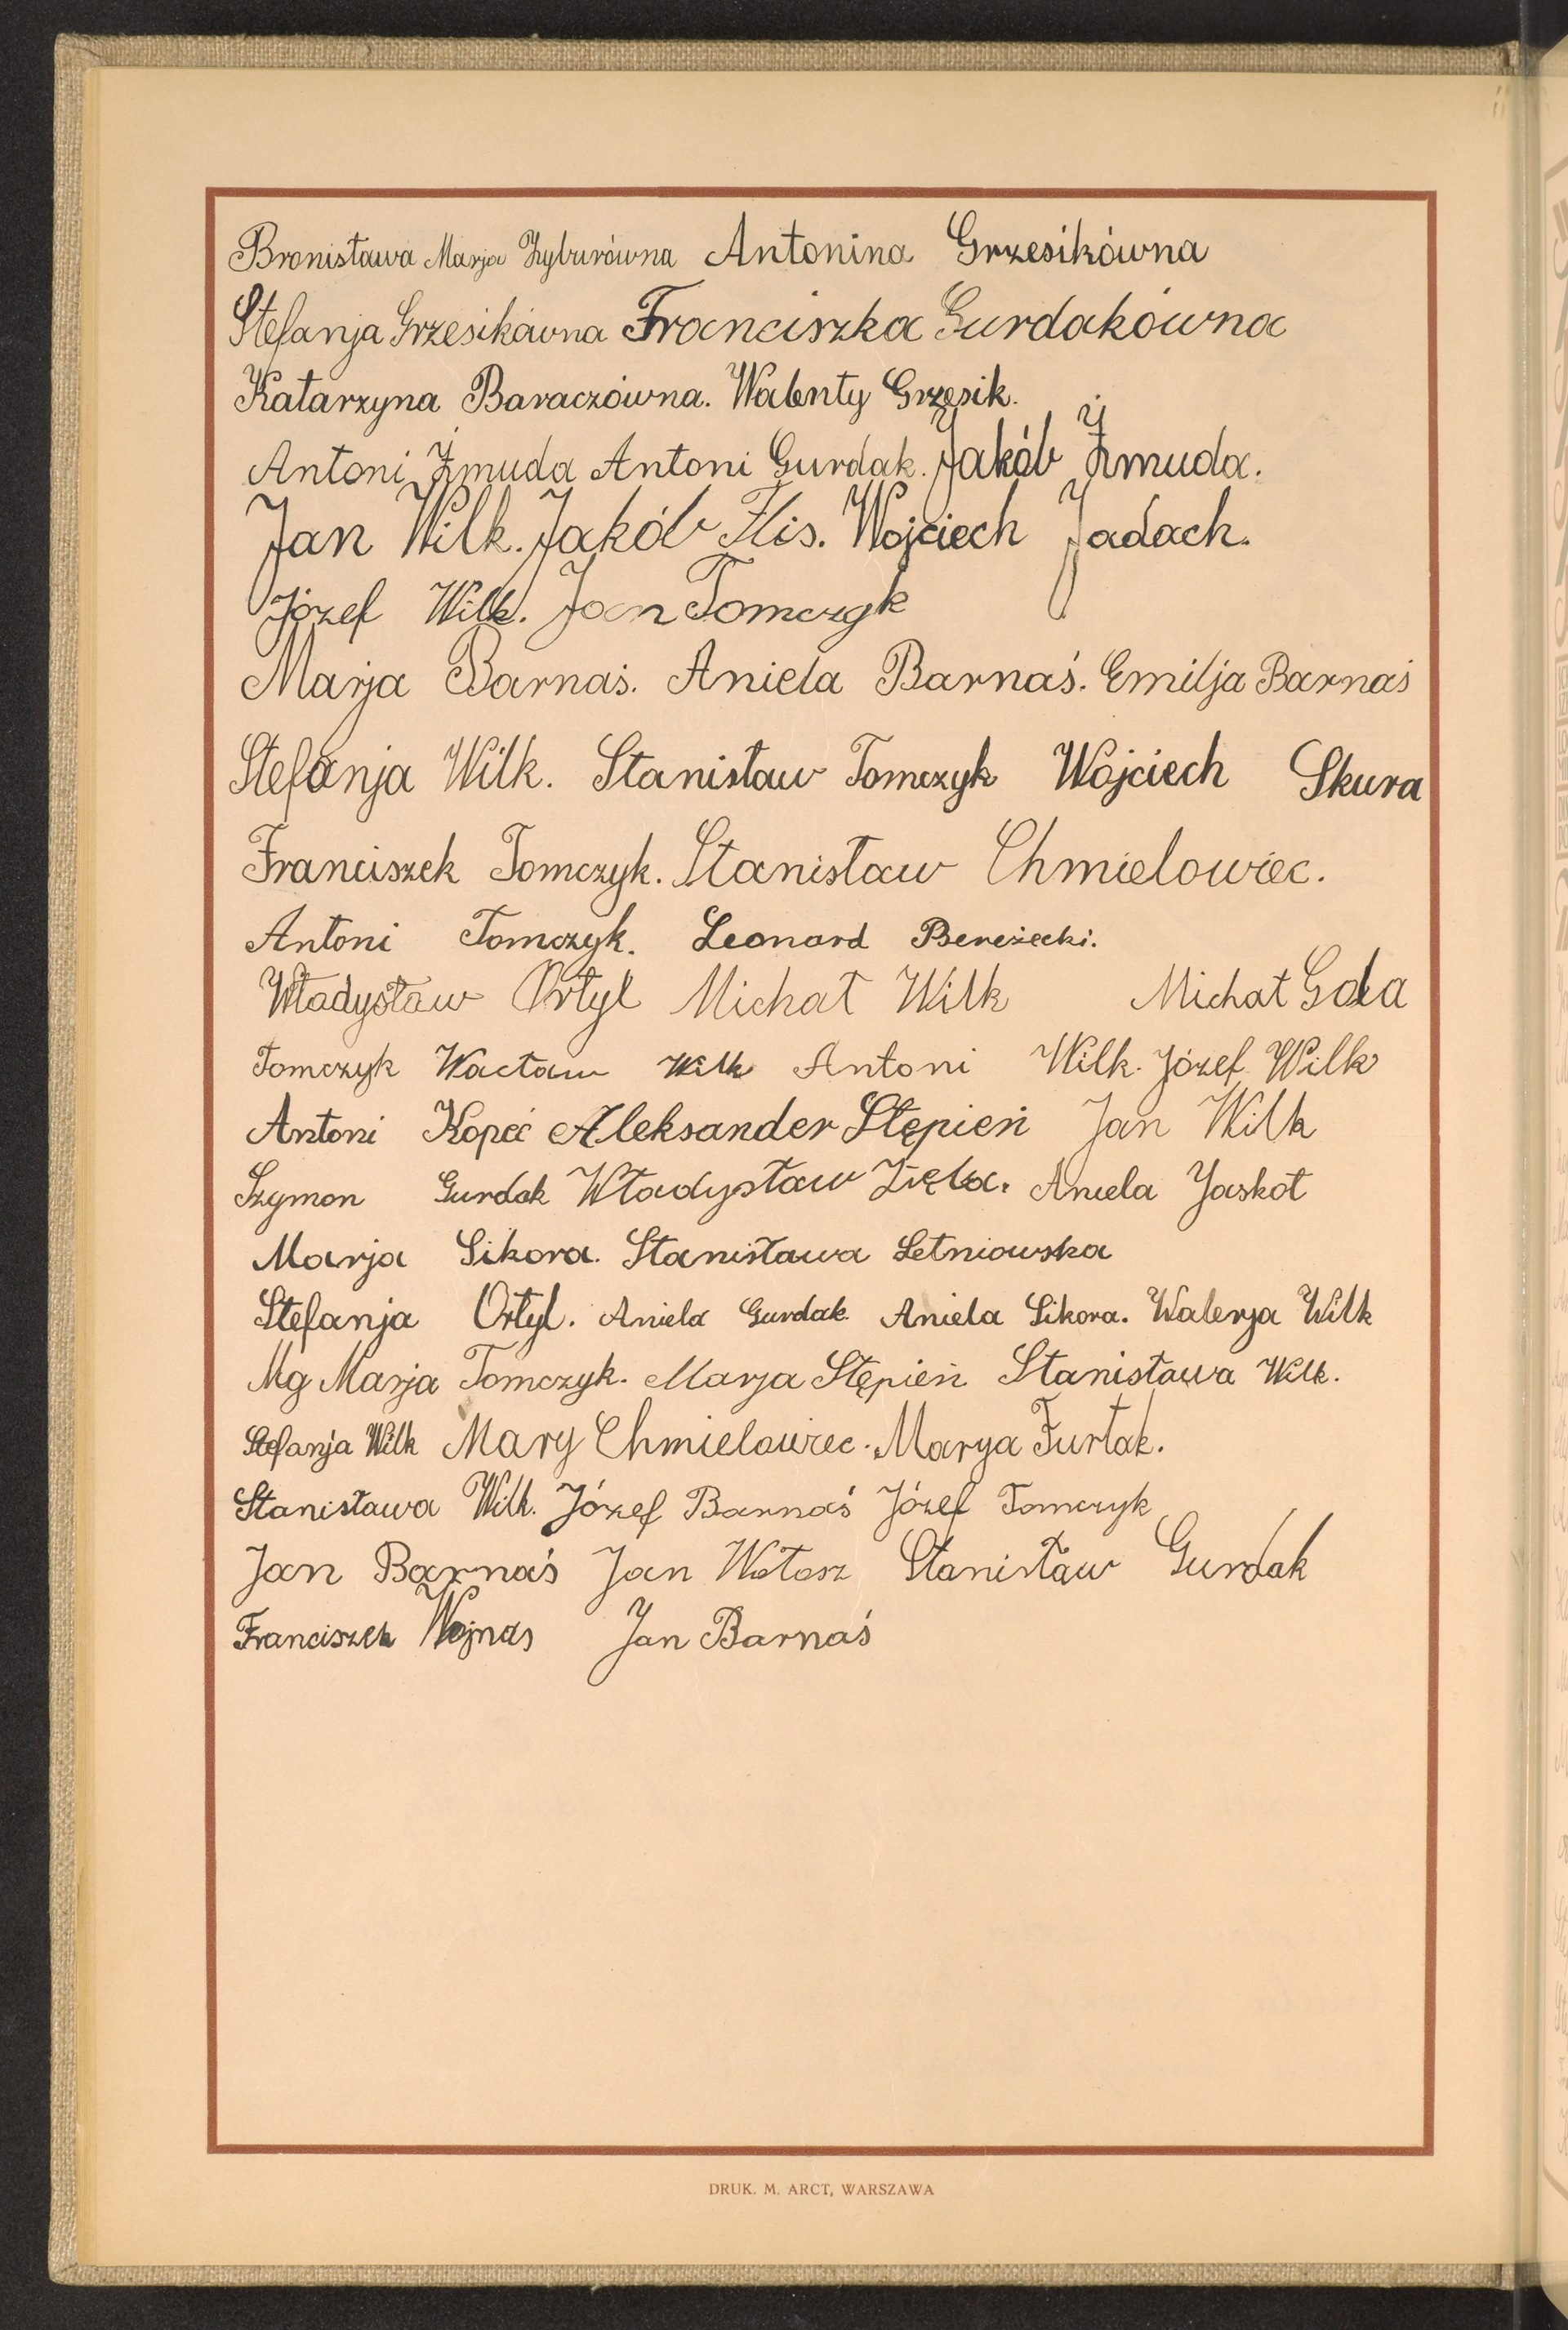 Bronisława Marja Zyburówna Antonina Grzesikówna
Stefanja Grzesikówna Franciszka Gurdakówna
Katarzyna Baraczówna. Walenty Grzesik.
Antoni Żmuda Antoni Gurdak. Jakób Żmuda.
Jan Wilk. Jakób Flis. Wojciech Jadach.
Józef Wilk. Jan Tomczyk
Marja Barnaś. Aniela Barnaś. Emilja Barnaś
Stefanja Wilk. Stanisław Tomczyk Wojciech Skura
Franciszek Tomczyk. Stanisław Chmielowiec.
Antoni Tomczyk. Leonard Bereżecki.
Władysław Ortyl Michał Wilk Michał Gola
Tomczyk Wacław Wilk Antoni Wilk. Józef Wilk
Antoni Kopeć Aleksander Stępień Jan Wilk
Szymon Gurdak Władysław Zięba. Aniela Jaskot
Marja Sikora. Stanisława Letniowska
Stefanja Ortyl. Aniela Gurdak. Aniela Sikora. Walerja Wilk
Mg Marja Tomczyk. Marja Stępień Stanisława Wilk.
Stefanja Wilk Mary Chmielowiec. Marya Furtak.
Stanisława Wilk. Józef Barnaś Józef Tomczyk
Jan Barnaś Jan Wołosz Stanisław Gurdak
Franciszek Wojnas Jan Barnaś
DRUK. M. ARCT, WARSZAWA